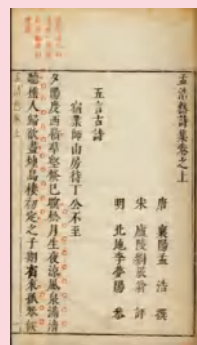 孟浩然詩集卷之上
唐 襄陽孟 浩 撰
宋 廬陵劉辰翁 評
明 北地李夢陽 參
五言古詩
宿業師山房待丁公不至
夕陽度西嶺羣壑倏已暝松月生夜涼風泉滿清
聽樵人歸欲盡煙鳥棲初定之子期宿來孤琴候